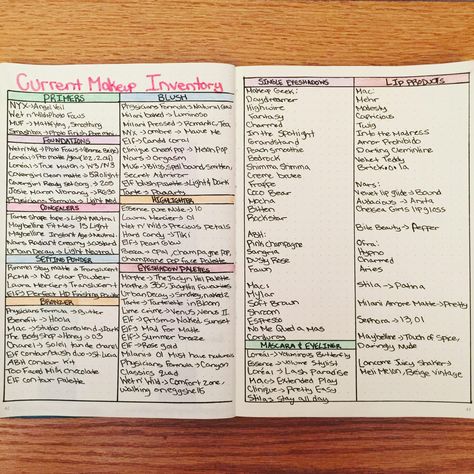 Current Makeup Inventory
PRIMERS
NYX → Angel Veil
Wet n Wild → Photo Focus
MUF → Mattifying, Smoothing
Smashbox → Photo Finish Pore Min.
FOUNDATIONS
Wet n Wild → Photo Focus →
Loréal → Pro matte
Loréal → True Match → N3
Covergirl Clean matte → 520 light
Covergirl Ready Set Gorg → 205
Josie Maran Vibrancy →
Physicians Formula → Light Med
CONCEALERS
Tarte Shape tape → Light Neutral
Maybelline Fit Me → 15 Light
Maybelline Instant Age →
Nars Radiant Creamy → Custard
Urban Decay → Light Neutral
SETTING POWDER
Rimmel Stay matte → Translucent
PCA → No Color Powder
Laura Mercier → Translucent
Elf → Perfect HD Finishing Powder
BRONZER
Physicians Formula → Butter
Benefit → Hoola
Mac → Studio
The Body Shop → Honey 03
Chanel → Soleil tan de
Elf Contour/blush duo → St Lucia
ABH Contour Kit
Too Faced Milk chocolate
Elf Contour palette
BLUSH
Physicians Formula → Natural Glow
Milani baked → Luminoso
Milani Pressed → Romantic, Tea
NYX → ombre → Mauve Me
Elf → Coral
Clinique Cheek Pop → Heather Pop
Nars → Orgasm
Wet n Wild →
Secret Admirer
Elf blush palette → Light & Dark
Tarte → Paaarty
HIGHLIGHTER
Essence Pure Nude → 10
Laura Mercier → 01
Wet n Wild → Precious Petals
Hard Candy → Tiki
Elf → Pearl Glow
Becca → Champagne Pop
Champagne Pop Face Palette
EYESHADOW PALETTES
Morphe → The Jaclyn Hill Palette
Morphe → 35O
Urban Decay → Smokey, naked 2
Tarte → Tartelette in Bloom
Lime Crime → Venus, Venus II
Elf → Prism → Naked, Sunset
Elf → Mad for Matte
Elf → Summer breeze
Elf → Rose gold
Milani → 01 Must have naturals
Physicians Formula → Canyon
Classics quad
Wet n Wild → Comfort zone,
walking on eggshells
SINGLE EYESHADOWS
Makeup Geek:
Daydreamer
Highwire
Fantasy
Charmed
In the Spotlight
Grandstand
Peach Smoothie
Bedrock
Shimma Shimma
Creme brulee
Frappe
Coco Bear
Mocha
Bitten
Rockstar
ABH:
Pink Champagne
Sangria
Dusty Rose
Fawn
Mac:
Mylar
Soft Brown
Shroom
Espresso
No Me Qued a Mas
Corduroy
MASCARA & EYELINER
Loréal → Voluminous, Butterfly
Essence → Volume Stylist
Loréal → Lash Paradise
Mac → Extended Play
Clinique → Pretty Easy
Stila → Stay all day
LIP PRODUCTS
Mac:
Mehr
Modesty
Capricious
Twig
In the Madness
Amor Prohibido
Darling Clementine
Velvet Teddy
Brick
Nars:
Velvet lip glide → Bound
Audacious → Anita
Chelsea Girls lip glass
Bite Beauty → Pepper
Ofra:
Hypno
Charmed
Aries
Stila → Patina
Milani Amore Matte → Pretty
Sephora → 13, 01
Maybelline → Touch of Spice,
Daringly Nude
Lancome Juicy Shakers
Meli Melon, Beige Vintage